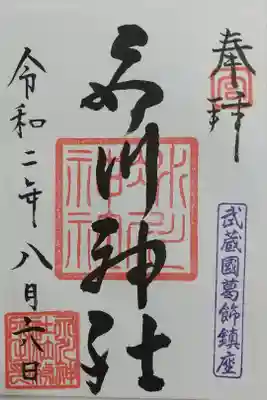 奉拝
武蔵國葛飾鎮座
氷川神社
氷川神社
令和二年八月六日